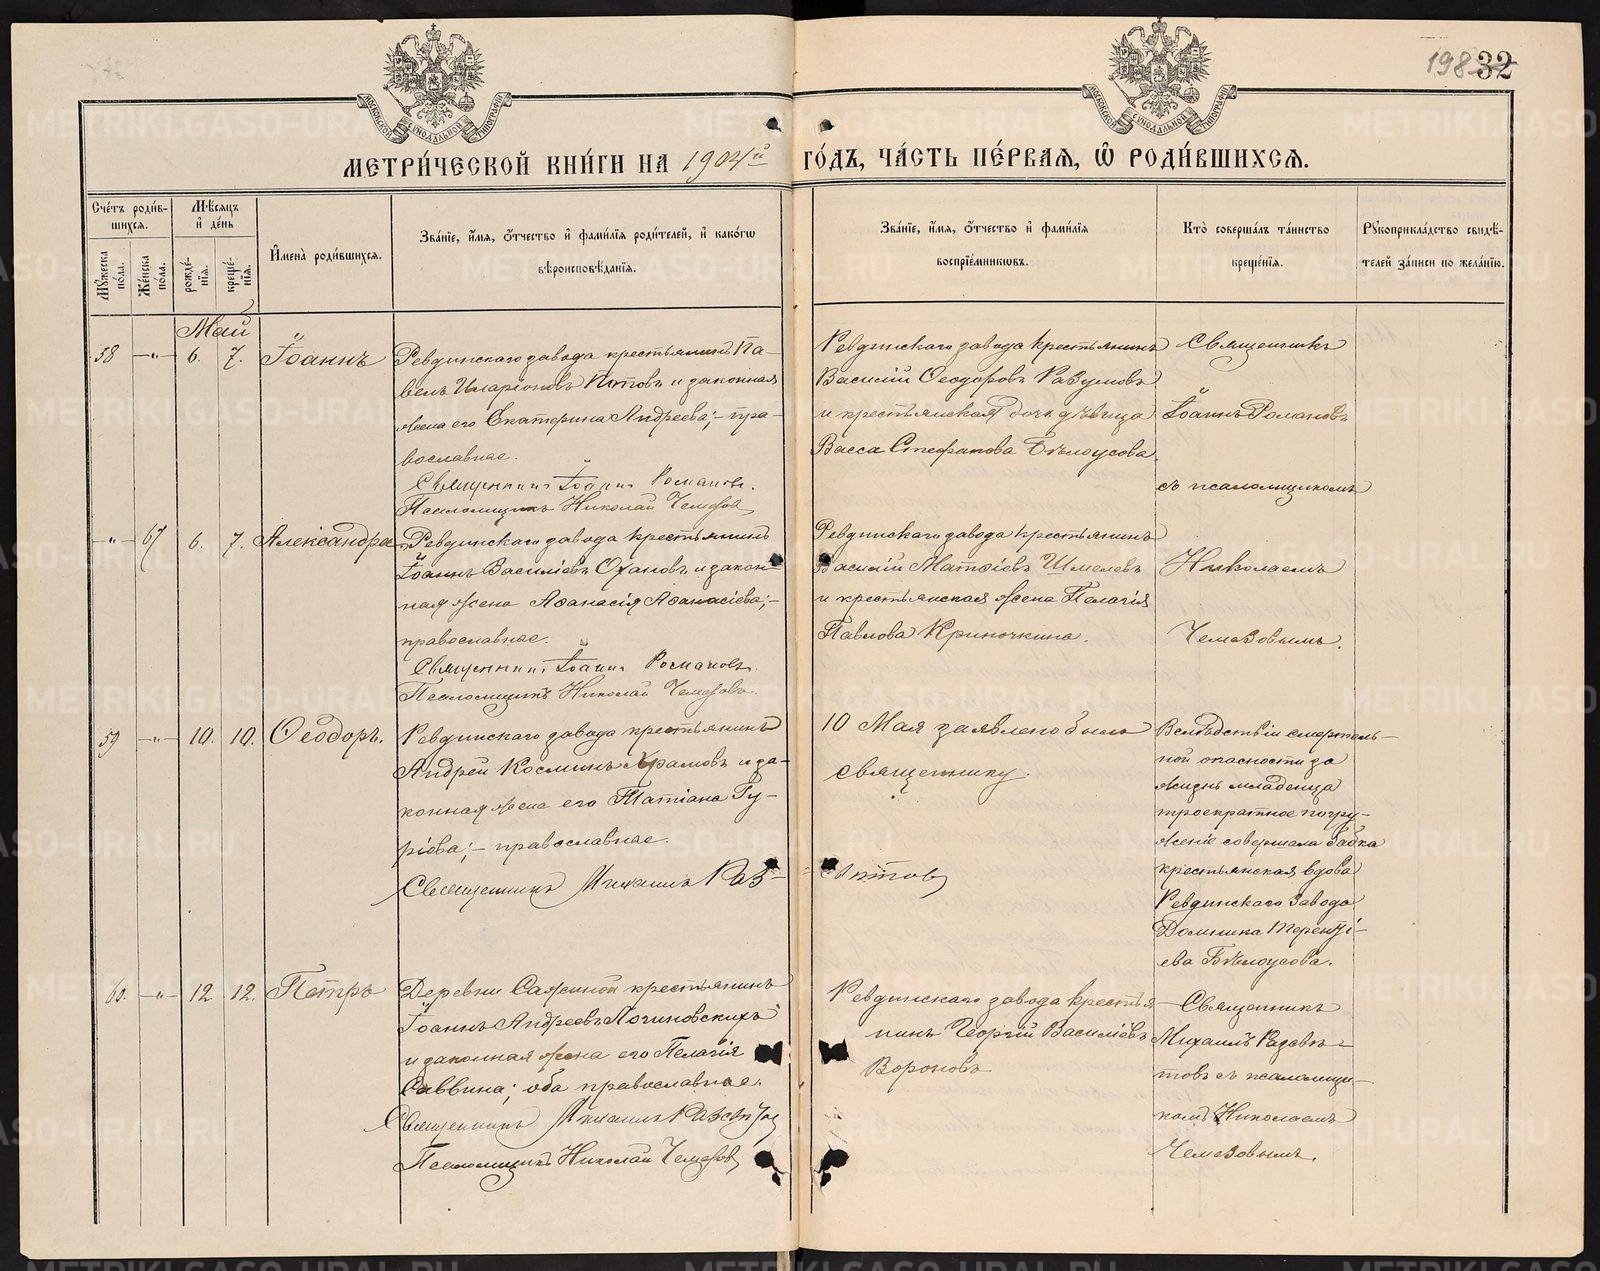 198 32
МОСКОВСКОЙ СѴНОДАЛЬНОЙ ТИПОГРАФІИ
МОСКОВСКОЙ СѴНОДАЛЬНОЙ ТИПОГРАФІИ
МЕТРИ́ЧЕСКОЙ КНИ́ГИ НА 1904й ГО́ДЪ, ЧА́СТЬ ПЕ́РВАЯ, Ѡ҆ РОДИ́ВШИХСЯ.
Сче́тъ роди́в-
шихся.
Мꙋ́жеска по́ла.
Же́нска по́ла.
Мѣ́сяцъ
и҆ де́нь
рожде́-
нїя.
креще́-
нїя.
И҆мена̀ роди́вшихся.
Зва́нїе, и҆́мя, ѻ҆́тчество и҆ фами́лїя роди́телей, и҆ како́гѡ
вѣроисповѣ́данїя.
Зва́нїе, и҆́мя, ѻ҆́тчество и҆ фами́лїя
воспрїе́мникѡвъ.
Кто̀ соверша́лъ та́инство
креще́нїя.
Рꙋкоприкла́дство свидѣ́-
телей за́писи по жела́нїю.
Май
58 -"- 6. 7. Іоаннъ
Ревдинскаго завода крестьянинъ Па-
велъ Иларіоновъ Поповъ и законная
жена его Екатерина Андреева;- пра-
вославнае.
Священникъ Іоаннъ Романовъ.
Псаломщикъ Николай Чемезов
Ревдинскаго завода крестьянинъ
Василій Ѳеодоровъ Разумовъ
и крестьянская дочь дѣвица
Васса Стефанова Бѣлоусова.
Священникъ
Іоаннъ Романовъ
съ псаломщикомъ
-"- 67 6. 7. Александра
Ревдинскаго завода крестьянинъ
Іоаннъ Василіевъ и закон-
ная жена Аѳанасія Аѳанасіева;-
православнае.
Священникъ Іоаннъ Романовъ.
Псаломщикъ Николай Чемезовъ.
Ревдинскаго завода крестьянинъ
Василій Матѳіевъ Шмелевъ
и крестьянская жена Пелагія
Павлова Криночкина.
Николаемъ
Чемезовымъ.
59 -"- 10. 10. Ѳеодоръ.
Ревдинскаго завода крестьянинъ
Андрей Косминъ Храмовъ и за-
конная жена его Татіана Гу-
ріева;- православнае.
Священникъ Михаилъ Раз-
10 Мая заявлено было
священнику.
вѣтов
Вслѣдствіи смертель-
ной опасности за
жизнь младенца
троекратное погру-
женіе совершала бабка
крестьянская вдова
Ревдинскаго завода
Домника Теренті-
ева Бѣлоусова.
60. -"- 12 12. Петръ
Деревни Сажиной крестьянинъ
Іоаннъ Андреевъ Логиновскихъ
и законная жена его Пелагія
Саввина; оба православнае.
Священникъ Михаилъ Разсвѣтов
Псаломщикъ Николай Чемезов
Ревдинскаго завода крестья-
нинъ Георгій Василіевъ
Вороновъ
Священникъ
Михаилъ Разсвѣ-
товъ съ псаломщи-
комъ Николаемъ
Чемезовымъ.
METRIKI.GASO-URAL.RU